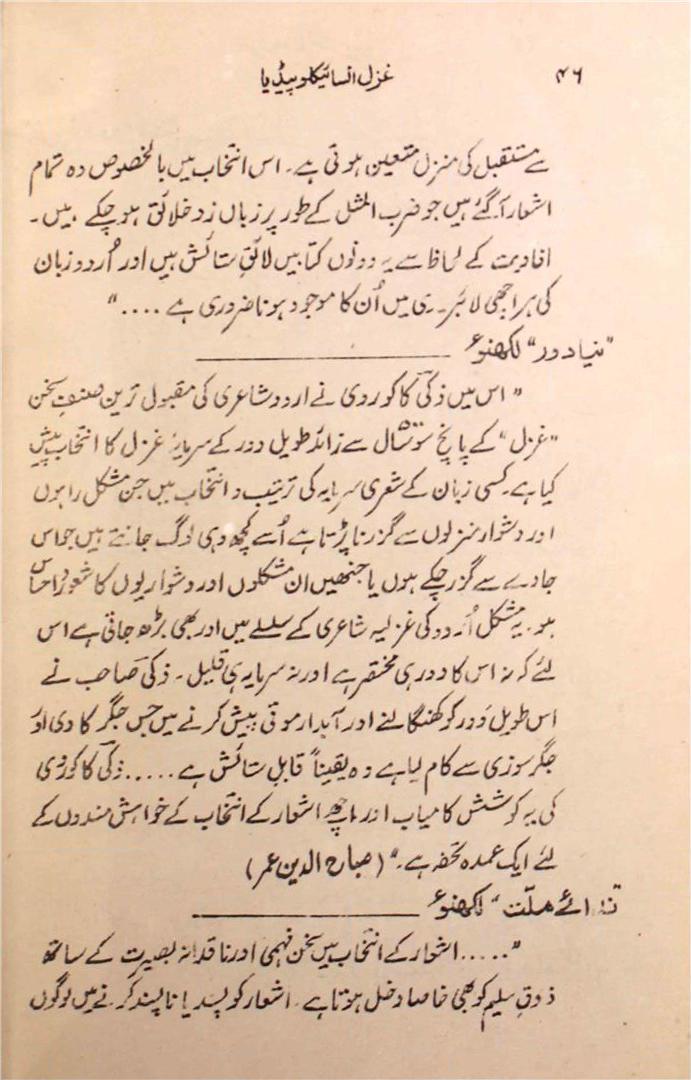 ۴۶ غزل انسائیکلوپیڈیا
سے مستقبل کی منزل متعین ہوتی ہے۔ اس انتخاب میں بالخصوص وہ تمام
اشعار آگئے ہیں جو ضرب المثل کے طور پر زباں زد خلائق ہو چکے ہیں۔
افادیت کے لحاظ سے یہ دونوں کتابیں لائقِ ستائش ہیں اور اُردو زبان
کی ہر اچھی لائبریری میں اُن کا موجود ہونا ضروری ہے ...."
"نیا دور" لکھنؤ
"اس میں ذکیؔ کاکوروی نے اردو شاعری کی مقبول ترین صنفِ سخن
"غزل" کے پانچ سو سال سے زائد طویل دور کے سرمایۂ غزل کا انتخاب پیش
کیا ہے۔ کسی زبان کے شعری سرمایہ کی ترتیب و انتخاب میں جن مشکل راہوں
اور دشوار منزلوں سے گزرنا پڑتا ہے اُسے کچھ وہی لوگ جانتے ہیں جو اس
جادے سے گزر چکے ہوں یا جنھیں ان مشکلوں اور دشواریوں کا شعور و احساس
ہو۔ یہ مشکل اُردو کی غزلیہ شاعری کے سلسلے میں اور بھی بڑھ جاتی ہے اس
لئے کہ نہ اس کا دور ہی مختصر ہے اور نہ سرمایہ ہی قلیل۔ ذکیؔ صاحب نے
اس طویل دَور کو کھنگالنے اور آبدار موتی پیش کرنے میں جس جگر کاوی اور
جگر سوزی سے کام لیا ہے وہ یقیناً قابلِ ستائش ہے ..... ذکیؔ کاکوروی
کی یہ کوشش کامیاب اور اچھے اشعار کے انتخاب کے خواہش مندوں کے
لئے ایک عمدہ تحفہ ہے۔" (صباح الدین عمر)
ندائے ملّت" لکھنؤ
"..... اشعار کے انتخاب میں سخن فہمی اور ناقدانہ بصیرت کے ساتھ
ذوقِ سلیم کو بھی خاصا دخل ہوتا ہے۔ اشعار کو پسند یا ناپسند کرنے میں لوگوں